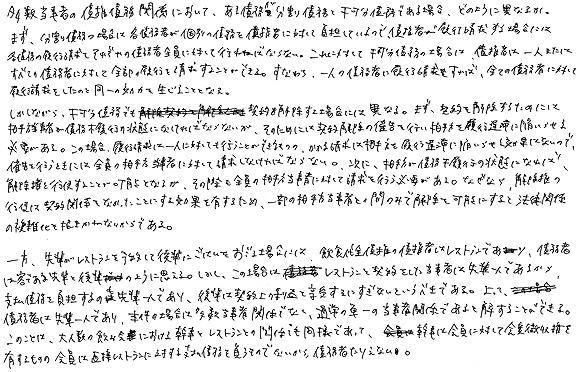 多数当事者の債権債務関係において、ある債務が分割債務と不可分債務である場合、どのように異なるか。
まず、分割債務の場合には各債務者が個別の債務を債権者に対して負担しているので債権者が履行請求する場合には
各債務の履行請求をそれぞれの債務者全員に対して行わねばならない。これに対して不可分債務の場合は、債権者は一人または
すべての債務者に対して全部の履行を請求することができる。すなわち、一人の債務者に履行請求をすれば、全ての債務者に対して
履行請求をしたのと同一の効力を生じることとなる。
しかしながら、不可分債務でも契約を解除する場合には異なる。まず、契約を解除するためには
相手当事者が債務不履行の状態になければならないが、そのためには契約解除の催告を行い相手を履行遅滞に陥いらせる
必要がある。この場合、履行請求は一人に対しても行うことができるものの、かかる請求は相手を履行遅滞に陥いらせる効果はないので、
催告を行うときには全員の相手方当事者に対して請求しなければならない。次に、相手が債務不履行の状態になれば、
解除権を行使することが可能となるが、その際も全員の相手方当事者に対して請求を行う必要がある。なぜなら、解除権の
行使は契約関係をなかったことにする効果を有するため、一部の相手方当事者との間のみで解除を可能にすると法律関係
の複雑化を招きかねないからである。
一方、先輩がレストランを予約して後輩にごちそうしておごる場合には、飲食代金債権の債権者はレストランであり、債務者
は客である先輩と後輩のように思える。しかし、この場合はレストランと契約をした当事者は先輩一人であるから、
支払債務を負担するのは先輩一人であり、後輩は契約上の利益を享受するにすぎないというべきである。よって、
債務者は先輩一人であり、本件の場合は多数当事者関係でなく、通常の単一の当事者関係であると解することができる。
このことは、大人数の飲み会における幹事とレストランとの関係でも同様であって、幹事は会員に対して会費徴収権を
有するものの会員は直接レストランに対する支払債務を負うものでないから、債務者たりえない。